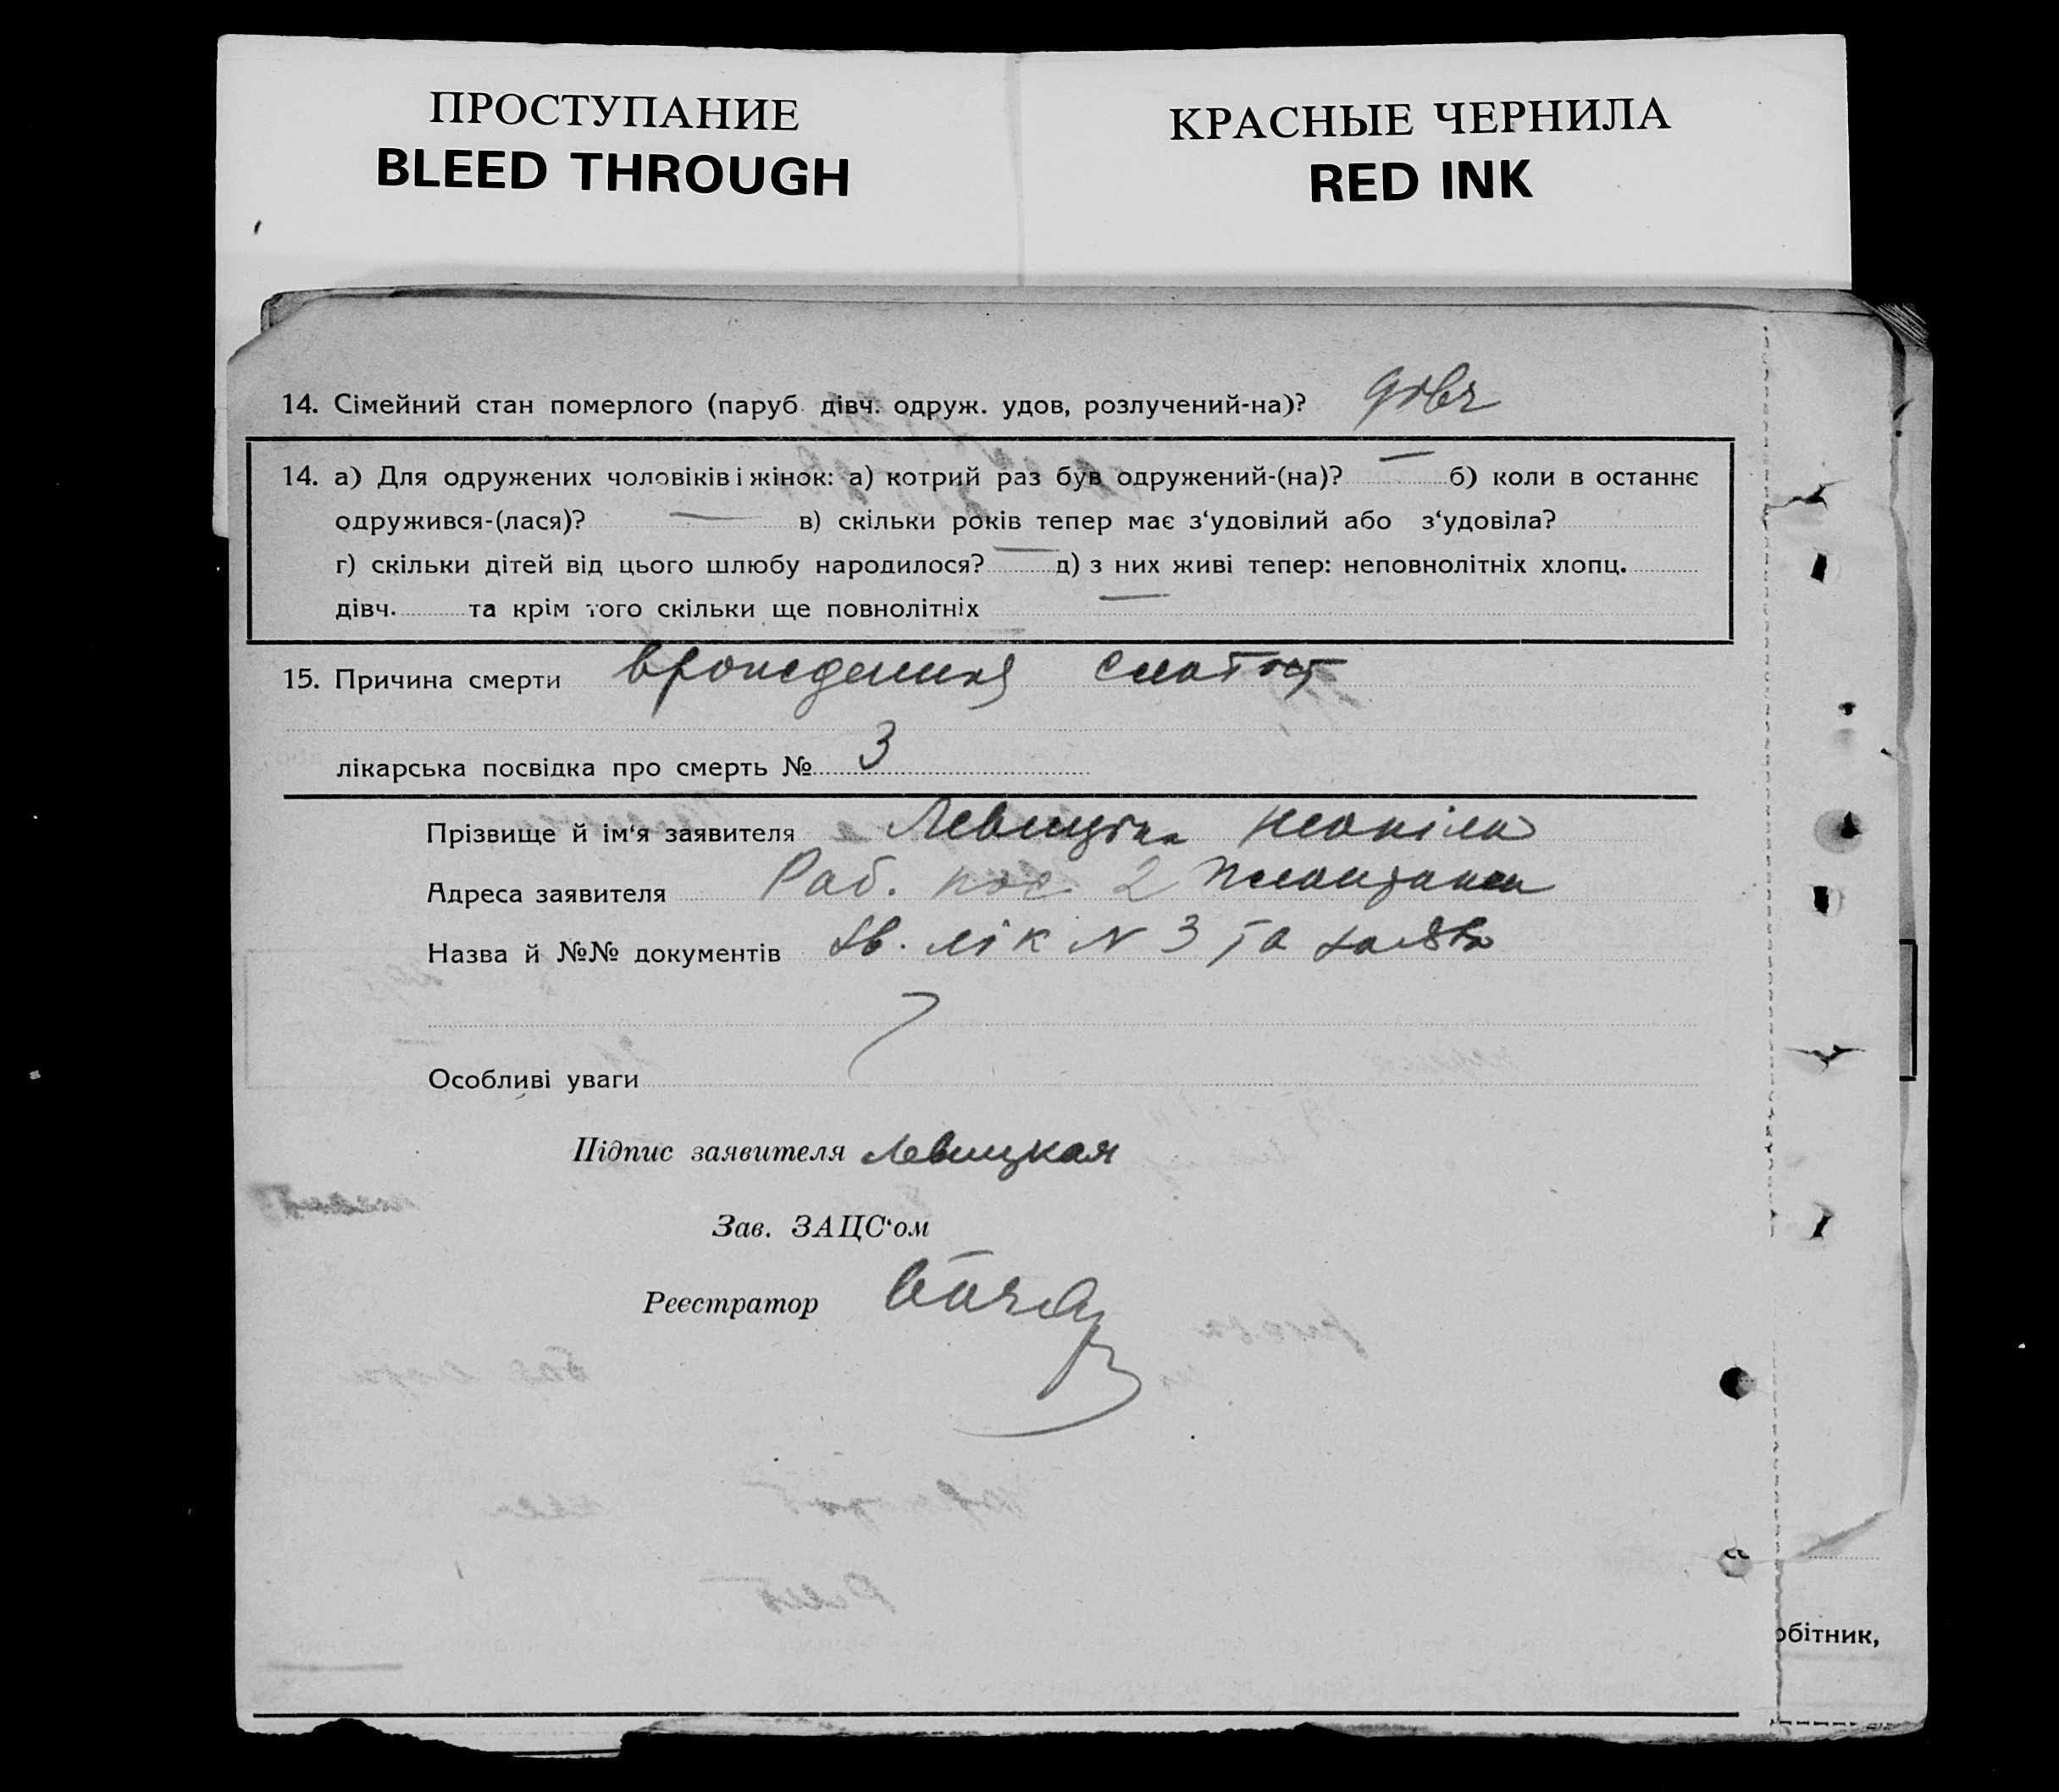 ПРОСТУПАНИЕ
BLEED THROUGH
КРАСНЫЕ ЧЕРНИЛА
RED INK
14. Сімейний стан померлого (паруб. дівч. одруж. удов, розлучений-на)? дівч
14. а) Для одружених чоловіків і жінок: а) котрий раз був одружений-(на)? — б) коли в останнє
одружився-(лася)? — в) скільки років тепер має з‘удовілий або з‘удовіла?
г) скільки дітей від цього шлюбу народилося? — д) з них живі тепер: неповнолітніх хлопц.
дівч. та крім того скільки ще повнолітніх —
15. Причина смерти врожденная слабост
лікарська посвідка про смерть № 3
Прізвище й ім‘я заявителя Левицька
Адреса заявителя Раб. пос 2
Назва й №№ документів лік N 3 та заява
Особливі уваги
Підпис заявителя Левицкая
Зав. ЗАЦС‘ом
Реєстратор
обітник,